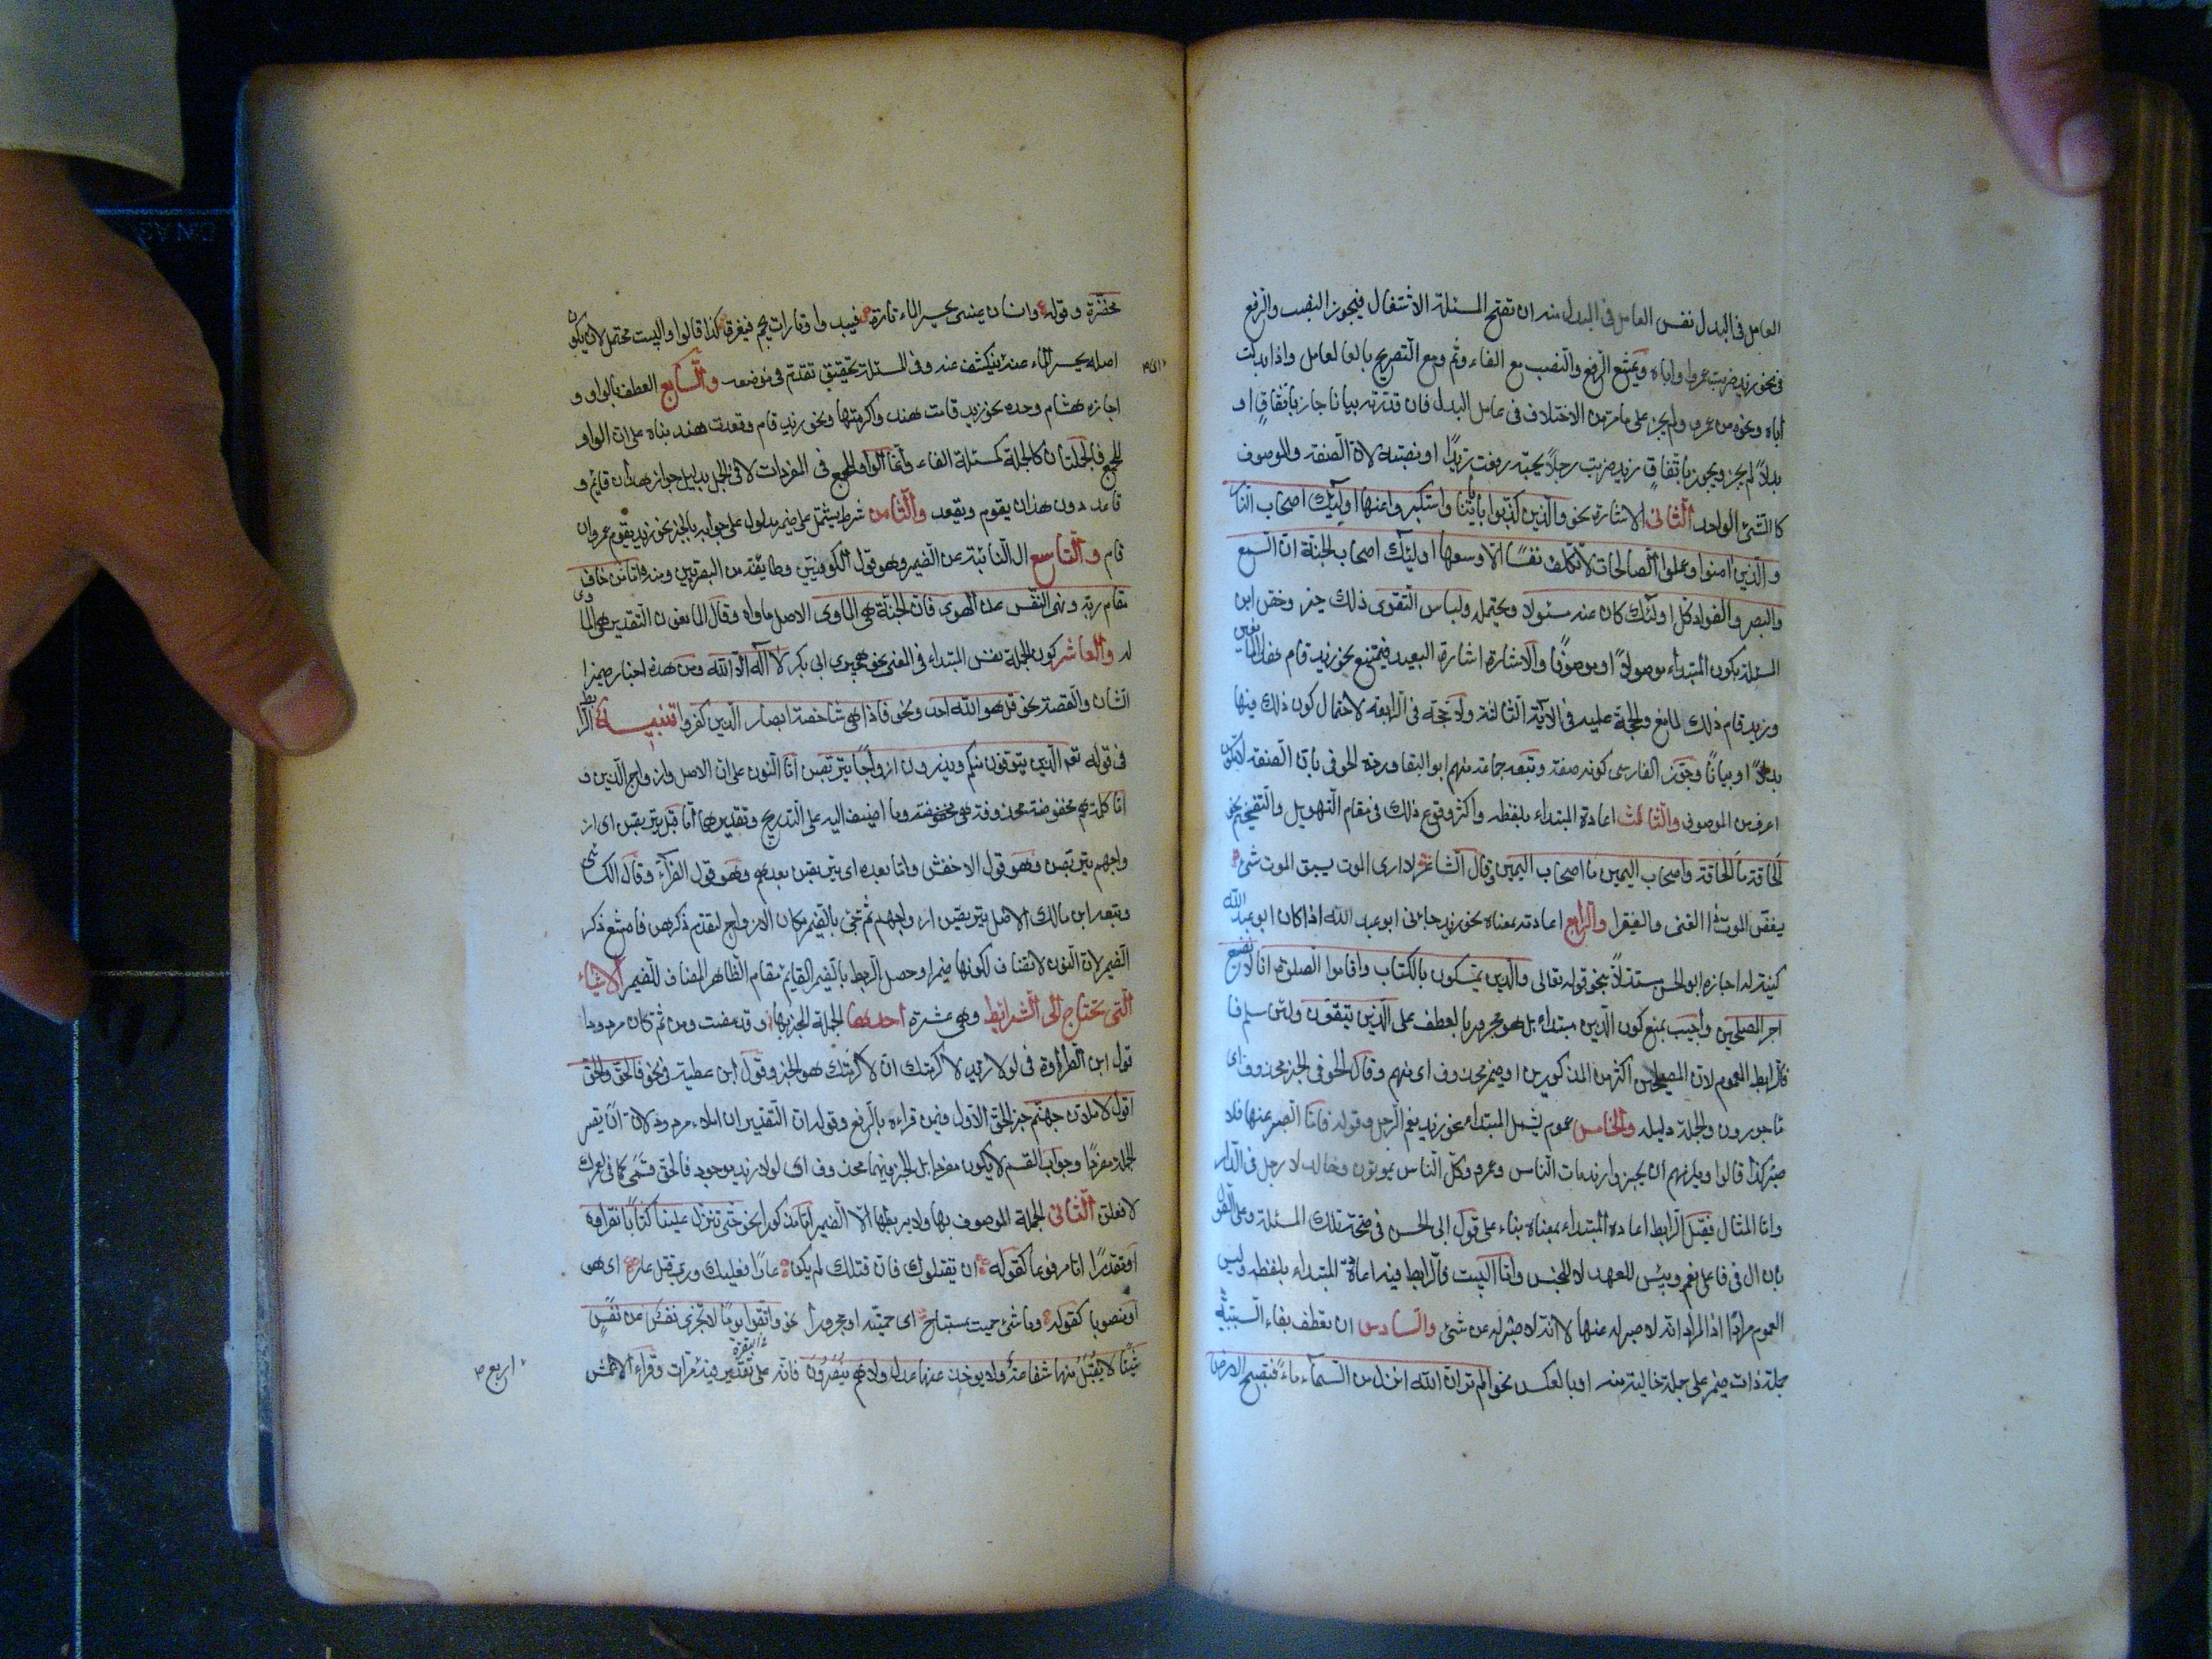 العامل فى البدل نفس العامل فى المبدل منه ان تقتح المسئلة الاشتغال فيجوز النصب والرفع
فى نحو زيد ضربت عمروا واباه ويمتنع الرفع والنصب مع الفاء وثم ومع التصريح بالعامل واذا ابدلت
اباه ونحوه من عمرو ولم يجز على ما مر من الاختلاف فى عامل البدل فان قدرته بيانا جاز باتفاق او
بدلاً لم يجز ويجوز باتفاق زيد ضربت رجلاً يحبه رفعت زيدًا او نصبته لان الصفة والموصوف
كالشئ الواحد الثانى الاشارة نحو والذين كذبوا بآياتنا واستكبروا عنها اولئك اصحاب النار
والذين امنوا وعملوا الصالحات لا نكلف نفسًا الا وسعها اولئك اصحاب الجنة ان السمع
والبصر والفواد كل اولئك كان عنه مسئولا ويحتمله ولباس التقوى ذلك خير وخص ابن
المسئلة بكون المبتداء موصولاً او موصوفًا والاشارة اشارة البعيد فيمتنع نحو زيد قام هذا لمانعين
وزيد قام ذلك لمانع والحجة عليه فى الآية الثالثة ولا حجة فى الرابعة لاحتمال كون ذلك فيها
بدلاً او بيانًا وجوز الفارسى كونه صفة وتبعه جماعة منهم ابو البقا ورده الحوفى بان الصفة لا تكون
اعرف من الموصوف والثالث اعادة المبتداء بلفظه واكثر وقوع ذلك فى مقام التهويل والتفخيم نحو
الحاقة ما الحاقة واصحاب اليمين ما اصحاب اليمين وقال الشاعر لا ارى الموت يسبق الموت شئ
يغض الموت ذا الغنى والفقيرا والرابع اعادته بمعناه نحو زيد جاءنى ابو عبد الله اذا كان ابو عبد الله
كنية له اجازه ابو الحسن مستدلاً بنحو قوله تعالى والذين يمسكون بالكتاب واقاموا الصلوة انا لا نضيع
اجر المصلحين واجيب بمنع كون الذين مبتداء بل هو مجرور بالعطف على الذين يتقون ولئن سلم فا
فالرابط العموم لان المصلحين اكثر من المذكورين او ضمير محذوف اى منهم وقال الحوفى الخبر محذوف اى
ماجورون والجملة دليله والخامس عموم يشمل المبتداء نحو زيد نعم الرجل وقوله فاما الصبر عنها فلا
صبر كذا قالوا ويلزمهم ان يجيزوا زيد مات الناس وعمرو كل الناس يموتون وخالد لا رجل فى الدار
واما المثال فقيل الرابط اعادة المبتداء بمعناه بناء على قول ابى الحسن فى صحة تلك المسئلة وعلى القول
بان ال فى فاعلى نعم وبئس للعهد لا للجنس واما البيت فالرابط فيه اعادة المبتداء بلفظه وليس
العموم مرادًا اذ المراد انه لا صبر له عنها لا انه لا صبر له عن شئ والسادس ان يعطف بفاء السببية
جملة ذات ضمير على جملة خالية منه او بالعكس نحو الم تر ان الله انزل من السمآء ماءً فتصبح الارض
مخضرة وقوله وانسان عينى يحسر الماء تارة فيبدو وتارات يجم فيغرق كذا قالوا والبيت محتمل لان يكون
اصله يحسر الماء عنه اى ينكشف عنه وفى المسئلة تحقيق تقدم فى موضعه والسابع العطف بالواو و
اجازه هشام وحده نحو زيد قامت هند واكرمتها ونحو زيد قام وقعدت هند بناء على ان الواو
للجمع فالجملتان كالجملة كمسئلة الفاء وانما الواو للجمع فى المفردات لا فى الجمل بدليل جواز هذان قايم و
قاعد دون هذان يقوم ويقعد والثامن شرط يشتمل على ضمير مدلول على جوابه بالخبر نحو زيد يقوم عمرو ان
قام والتاسع ال النائبة عن الضمير وهو قول الكوفيين وطايفة من البصريين ومنه واما من خاف
مقام ربه ونهى النفس عن الهوى فان الجنة هى الماوى الاصل ماواه وقال المانعون التقدير هى الماوى
له والعاشر كون الجملة نفس المبتداء فى المعنى نحو هجيرى ابى بكر لا اله الا الله ومن هذه اخبار ضمير
الشان والقصة نحو قل هو الله احد ونحو فاذا هى شاخصة ابصار الذين كفروا تنبيه الرابط
فى قوله تعم الذين يتوفون منكم ويذرون ازواجًا يتربصن اما النون على ان الاصل وازواج الذين و
اما كلمة هم مخفوضة محذوفة هى مخفوضة وما اضيف اليه على التدريج وتقديرها اما قبل يتربصن اى از
واجهم يتربصن وهو قول الاخفش واما بعده اى يتربصن بعدهم وهو قول الفرآء وقال الكسائى
وتبعه ابن مالك الاصل يتربصن ازواجهم ثم جئ بالضمير مكان الازواج لتقدم ذكرهن فامتنع ذكر
الضمير لان النون لا تضاف لكونها ضميرا وحصل الربط بالضمير القايم مقام الظاهر المضاف للضمير الاشياء
التى تحتاج الى الشرابط وهى عشرة احدها الجملة المخبر بها وقد مضت ومن ثم كان مردودا
قول ابن الطراوة فى لولا زيد لاكرمتك ان لاكرمتك هو الخبر وقول ابن عطية ونحو فالحق والحق
اقول لاملان جهنم خبر الحق الاول فيمن قراءه بالرفع وقوله ان التقدير ان املاء مردود لان ان تصير
الجملة مفردًا وجواب القسم لا يكون مفردا بل الخبر فيهما محذوف اى لولا زيد موجود فالحق قسمى كما فى لعمرك
لافعلن الثانى الجملة الموصوف بها ولا يربطها الا الضمير اما مذكورا نحو حتى تنزل علينا كتابًا نقراوه
او مقدرًا اما مرفوعا كقوله ان يقتلوك فان قتلك لم يكن عارًا عليك ورب قتل عار اى هو
او منصوبا كقوله وما شئ حميت بمستباح اى حميته او مجرورا نحو واتقوا يومًا لا تجزى نفس عن نفسٍ
شيئًا لا يقبل منها شفاعة ولا يوخذ منها عدل ولا هم ينصرون فانه على تقدير فيه مرات وقراء الاعمش
اربع